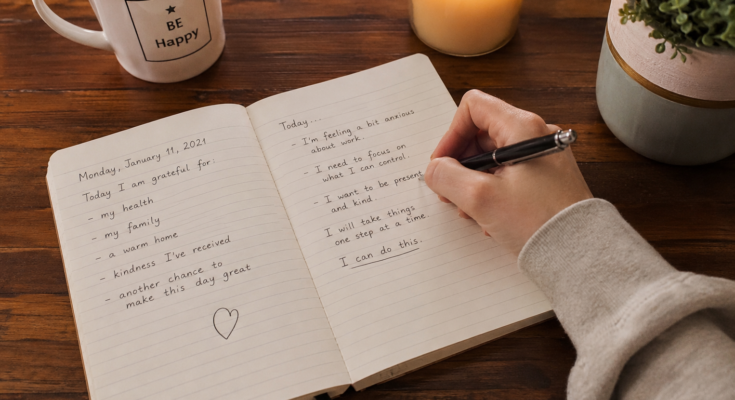 BE
Happy
Monday, January 11, 2021
Today I am grateful for:
- my health
- my family
- a warm home
- kindness I've received
- another chance to
make this day great
Today...
- I'm feeling a bit anxious
about work.
- I need to focus on
what I can control.
- I want to be present
and kind.
I will take things
one step at a time.
I can do this.